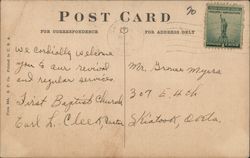 POST CARD
70
FOR CORRESPONDENCE
FOR ADDRESS ONLY
We cordially welcome
you to our revival
and regular services.
First Baptist Church
Earl L.
Mr. Grover Myers
307 E 4th
Skiatook, Okla.